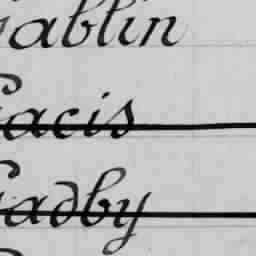 Gablin
Gacis
Gadby